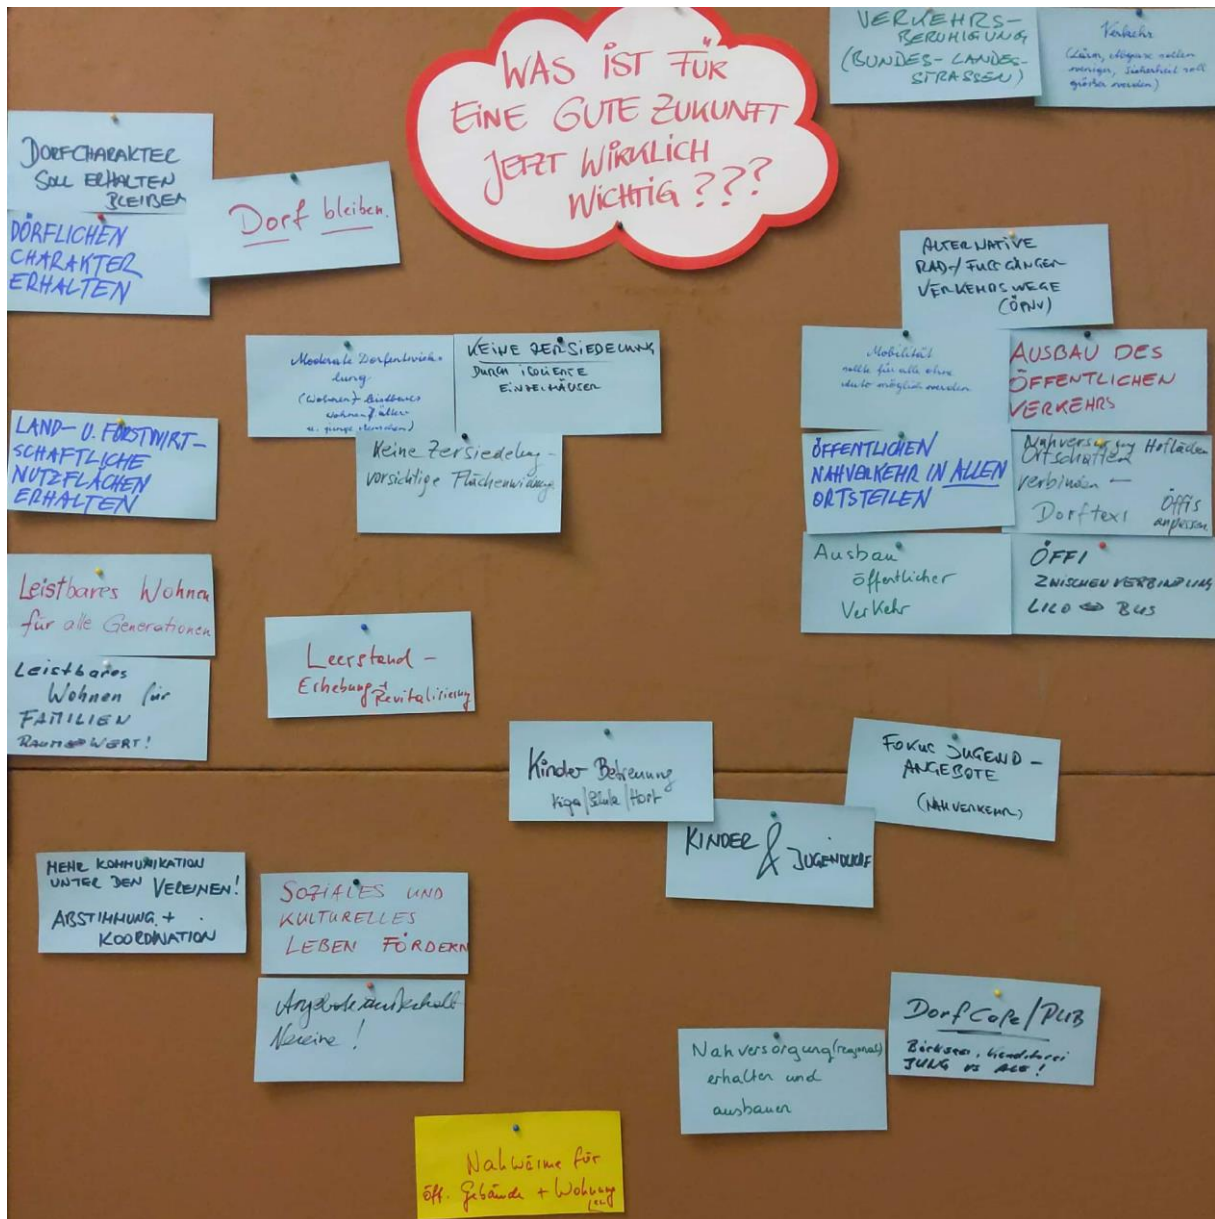 WAS IST FÜR
EINE GUTE ZUKUNFT
JETZT WIRKLICH
WICHTIG ???
VERKEHRS-
BERUHIGUNG
(BUNDES- LANDES-
STRASSEN)
Verkehr
(Lärm, Abgase sollen
weniger, Sicherheit soll
größer werden)
DORFCHARAKTER
SOLL ERHALTEN
BLEIBEN
Dorf bleiben.
DÖRFLICHEN
CHARAKTER
ERHALTEN
ALTERNATIVE
RAD-/FUSSGÄNGER
VERKEHRSWEGE
(ÖPNV)
Moderate Dorfentwick-
lung
(Wohnen) leistbares
wohnen f. ältere
u. junge Menschen)
KEINE ZERSIEDELUNG
DURCH ISOLIERTE
EINZELHÄUSER
Keine Zersiedelung -
vorsichtige
Mobilität
sollte für alle ohne
Auto möglich werden
AUSBAU DES
ÖFFENTLICHEN
VERKEHRS
LAND- U. FORSTWIRT-
SCHAFTLICHE
NUTZFLÄCHEN
ERHALTEN
ÖFFENTLICHEN
NAHVERKEHR IN ALLEN
ORTSTEILEN
Nahversorgung Hofläden
Ortschaften
verbinden -
Dorftaxi Öffis
anpassen
Ausbau
öffentlicher
Verkehr
ÖFFI
ZWISCHENVERBINDUNG
LILO ⇔ BUS
Leistbares Wohnen
für alle Generationen
Leistbares
Wohnen für
FAMILIEN
Leerstand -
Erhebung + Revitalisierung
Kinder Betreuung
Kiga/Schule/Hort
FOKUS JUGEND -
ANGEBOTE
(NAHVERKEHR)
KINDER & 
MEHR KOMMUNIKATION
UNTER DEN VEREINEN!
ABSTIMMUNG +
KOORDINATION
SOZIALES UND
KULTURELLES
LEBEN FÖRDERN
Angebote außerhalb
Vereine!
Nahversorgung (regional)
erhalten und
ausbauen
Dorf Cafe/PUB
JUNG
Nahwärme für
öff. Gebäude + Wohnung